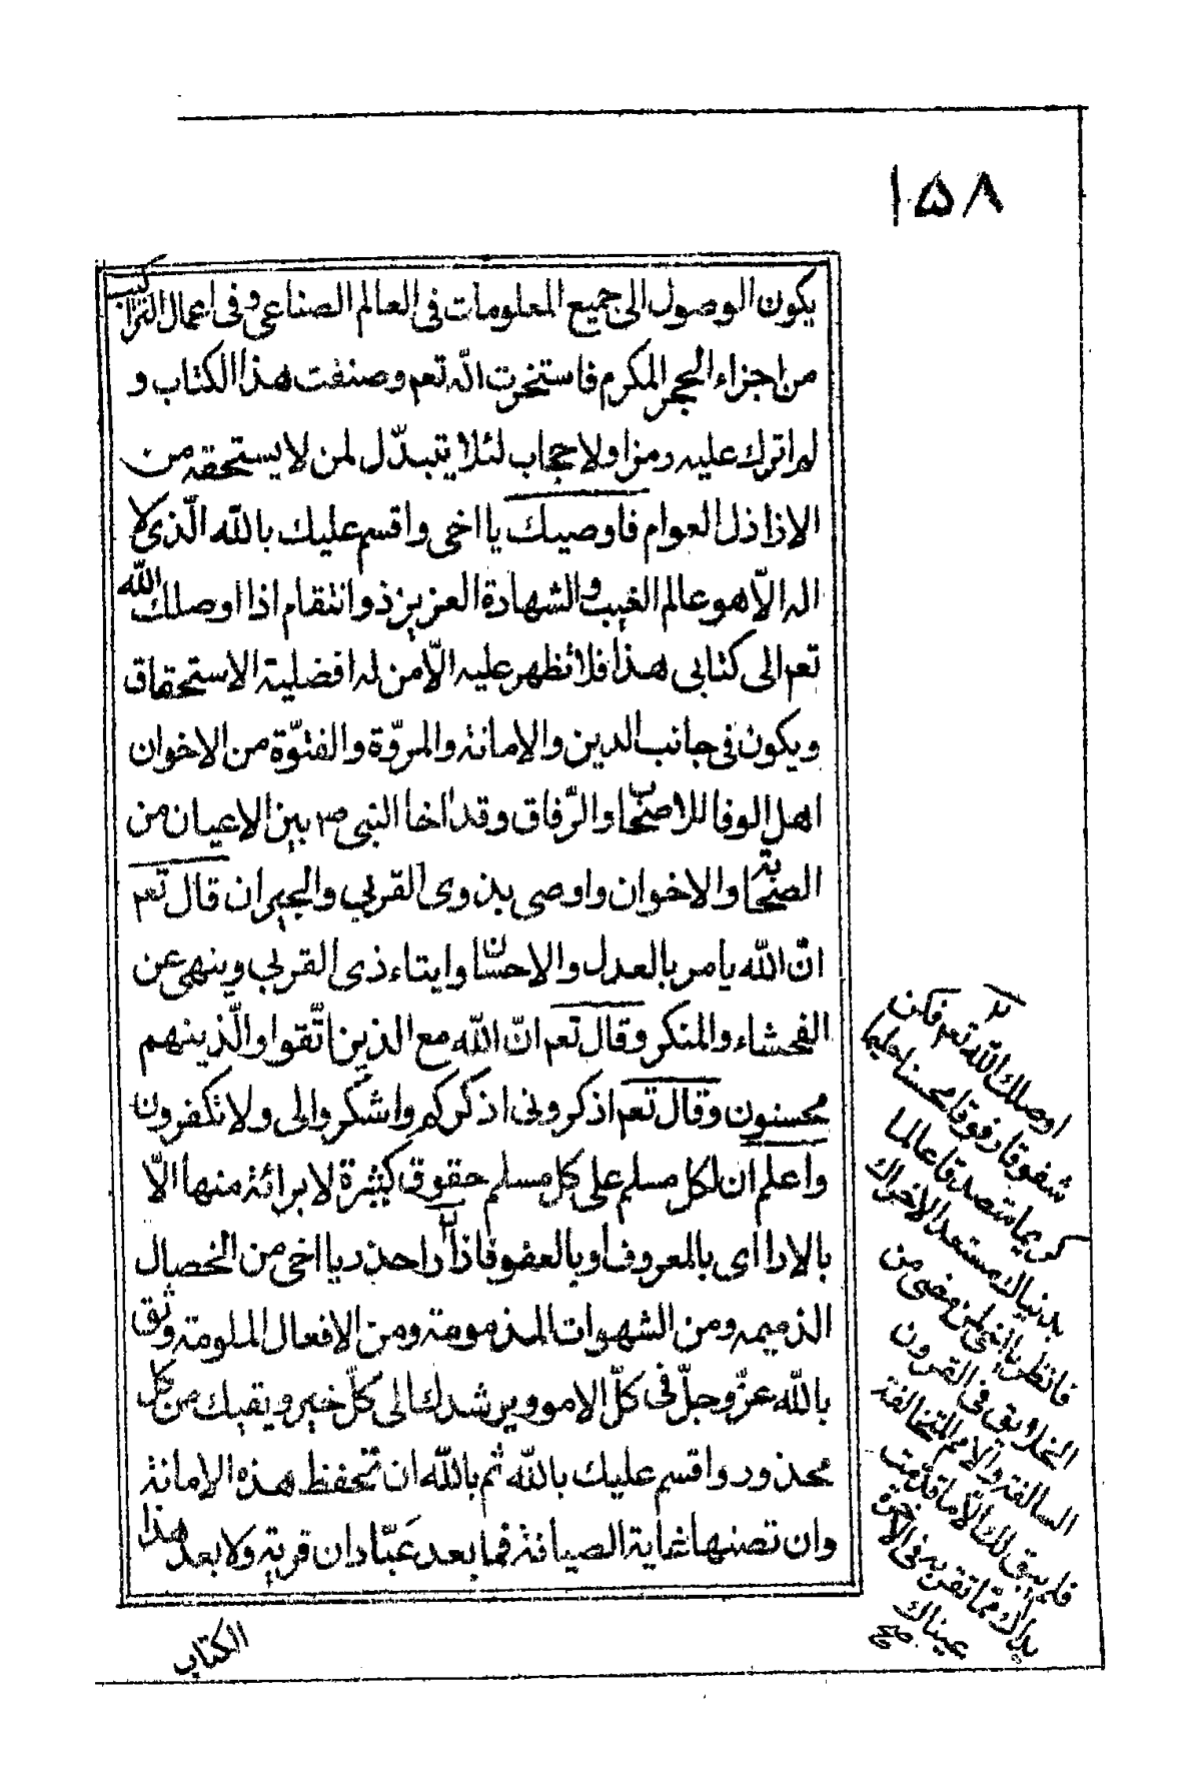 ١٥٨
يكون الوصول الى جميع المعلومات فى العالم الصناعى وفى اعمال التراكيب
من اجزاء الحجر المكرم فاستخرت الله تعم وصنفت هذا الكتاب و
لم اترك عليه رمزا ولا حجاب لئلا يتبدّل لمن لا يستحقه من
الاذاذل العوام فاوصيك يا اخى واقسم عليك بالله الّذى لا
اله الّا هو عالم الغيب والشهادة العزيز ذو انتقام اذا اوصلك الله
تعم الى كتابى هذا فلا تظهر عليه الّا من له افضلية الاستحقاق
ويكون فى جانب الدين والامانة والمروّة والفتوّة من الاخوان
اهل الوفا للاصحاب والرّفاق وقد اخا النبى صم بين الاعيان من
الصحابة والاخوان واوصى بذوى القربى والجيران قال تعم
انّ الله يامر بالعدل والاحسان وايتاء ذى القربى وينهى عن
الفحشاء والمنكر وقال تعم انّ الله مع الذين اتّقوا والّذينهم
محسنون وقال تعم اذكرونى اذكركم واشكروا لى ولا تكفرون
واعلم ان لكل مسلم على كل مسلم حقوق كثيرة لا برائة منها الّا
بالادا اى بالمعروف او بالعفو فاذا احذر يا اخى من الخصال
الذميمه ومن الشهوات المذمومة ومن الافعال الملومة وثق
بالله عزّ وجلّ فى كلّ الامو ويرشدك الى كلّ خير ويقيك من كل
محذور واقسم عليك بالله ثم بالله ان تحفظ هذه الامانة
وان تصنها غاية الصيانة فما بعد عبّادان قرية ولا بعد هذا
الكتاب
اوصلك الله تعم فكن
شفوقا رفوقا محسنا حليما
كريما متصدقا عالما
بدنياك مستعد لاخراك
فانظر يا اخى لمن مضى من
الخلايق فى القرون
السالفة والامم المتخالفة
فلم يبق لك الّا ما قدّمت
يداك ممّا تقر به فى الآخرة
عيناك
صح